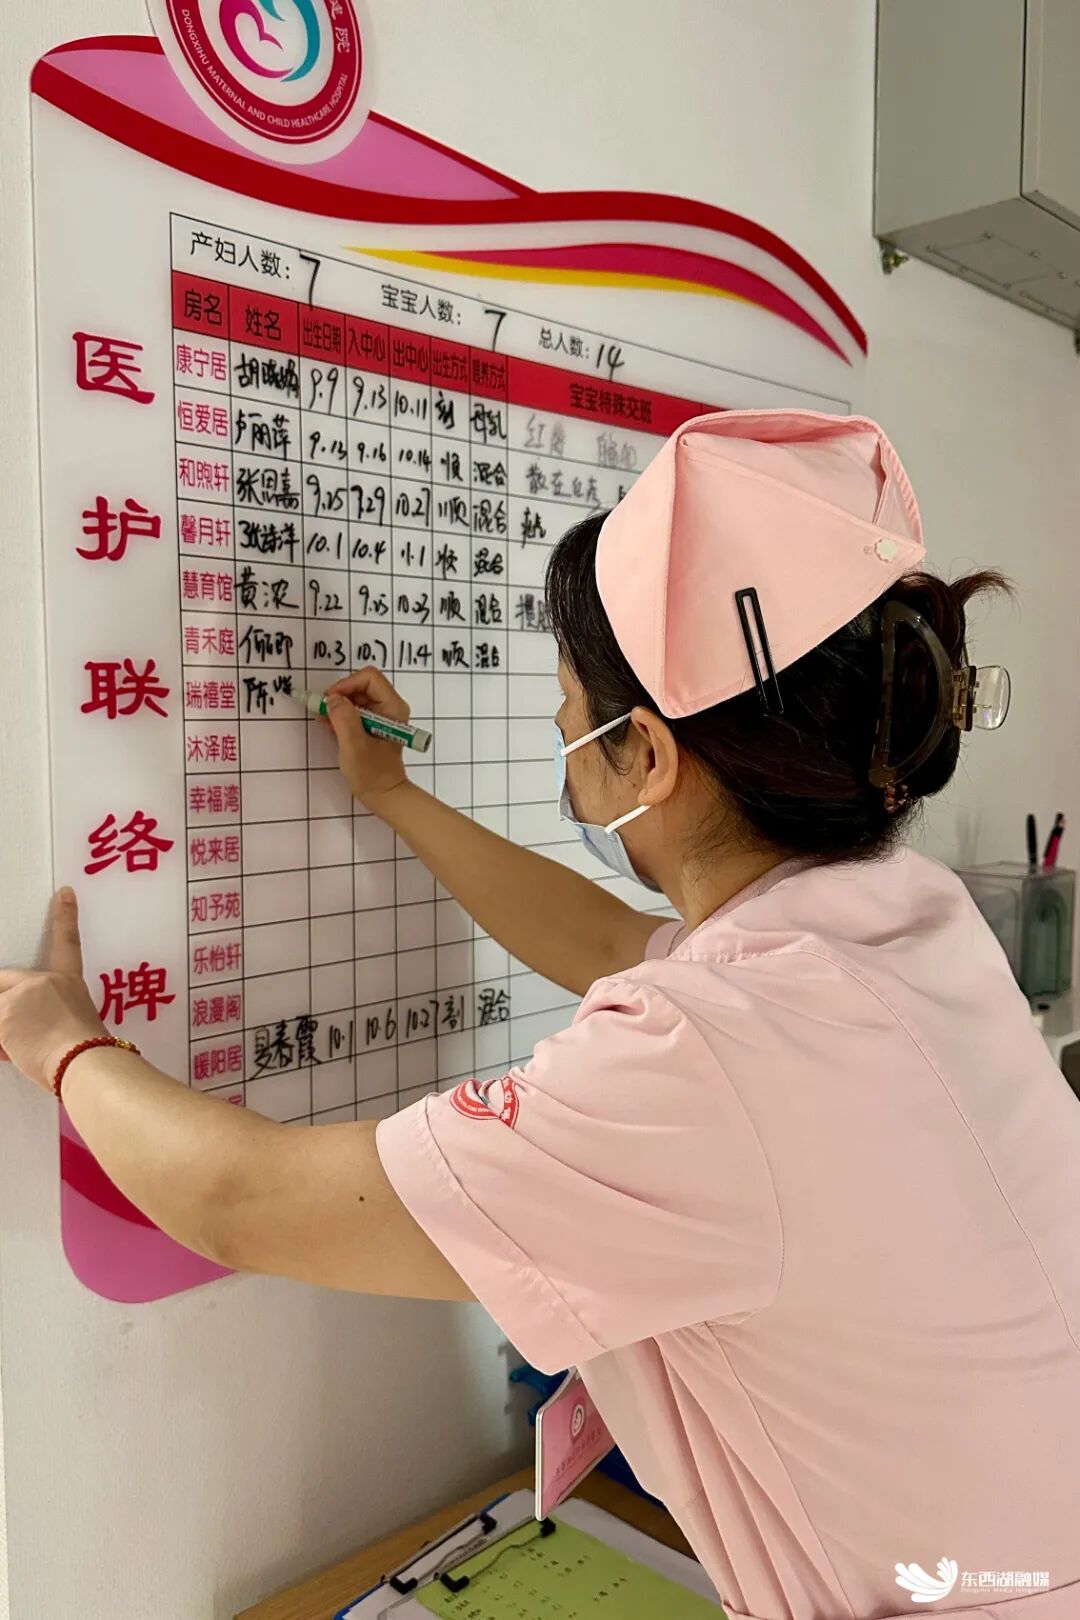 建院
DONGXIHU MATERNAL AND CHILD HEALTHCARE HOSPITAL
医护联络牌
产妇人数：7 宝宝人数：7 总人数：14
房名 姓名 出生日期 入中心 出中心 出生方式 喂养方式 宝宝特殊交班
康宁居 胡晓娟 9.9 9.13 10.11 剖 母乳
恒爱居 卢丽萍 9.13 9.16 10.14 顺 混合
和煦轩 张恩嘉 9.25 9.29 10.27 顺 混合
馨月轩 张诗洋 10.1 10.4 11.1 顺 混合
慧育馆 黄浓 9.22 9.25 10.23 顺 混合
青禾庭 10.3 10.7 11.4 顺 混合
瑞禧堂 陈
沐泽庭
幸福湾
悦来居
知予苑
乐怡轩
浪漫阁
暖阳居 春霞 10.1 10.6 10.27 剖 混合
居
东西湖融媒
Dongxihu Media Integration